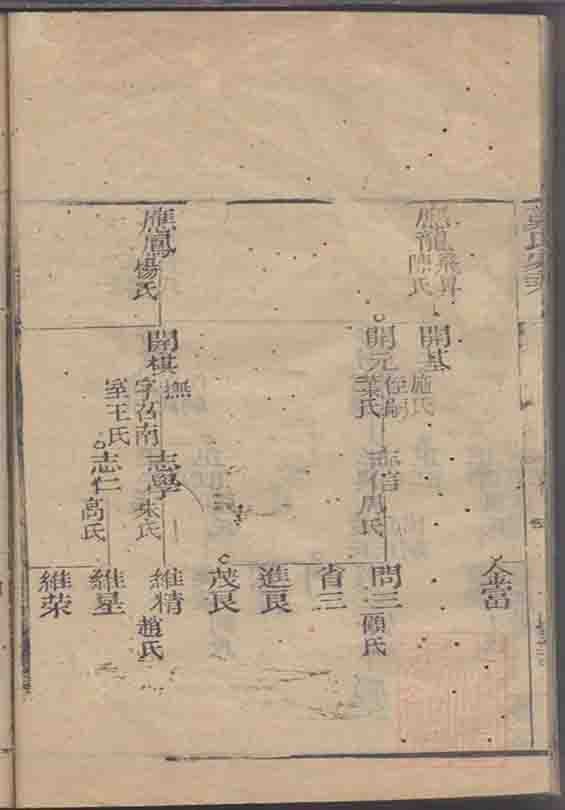 應龍
飛昇
陳氏
應鳳
楊氏
開基
施氏
開元
侄嗣
葉氏
開棋
撫
字召南
室王氏
志信
周氏
志學
朱氏
志仁
高氏
金富
問三
顧氏
省三
進良
茂良
維精
趙氏
維星
維荣